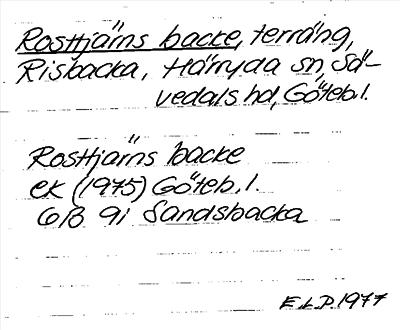 Rosttjärns backe, terräng,
Risbacka, Härryda sn, Sä-
vedals hd, Göteb.l.
Rosttjärns backe
ek (1975) Göteb.l.
6B 9i Sandsbacka
E.L.P. 1977